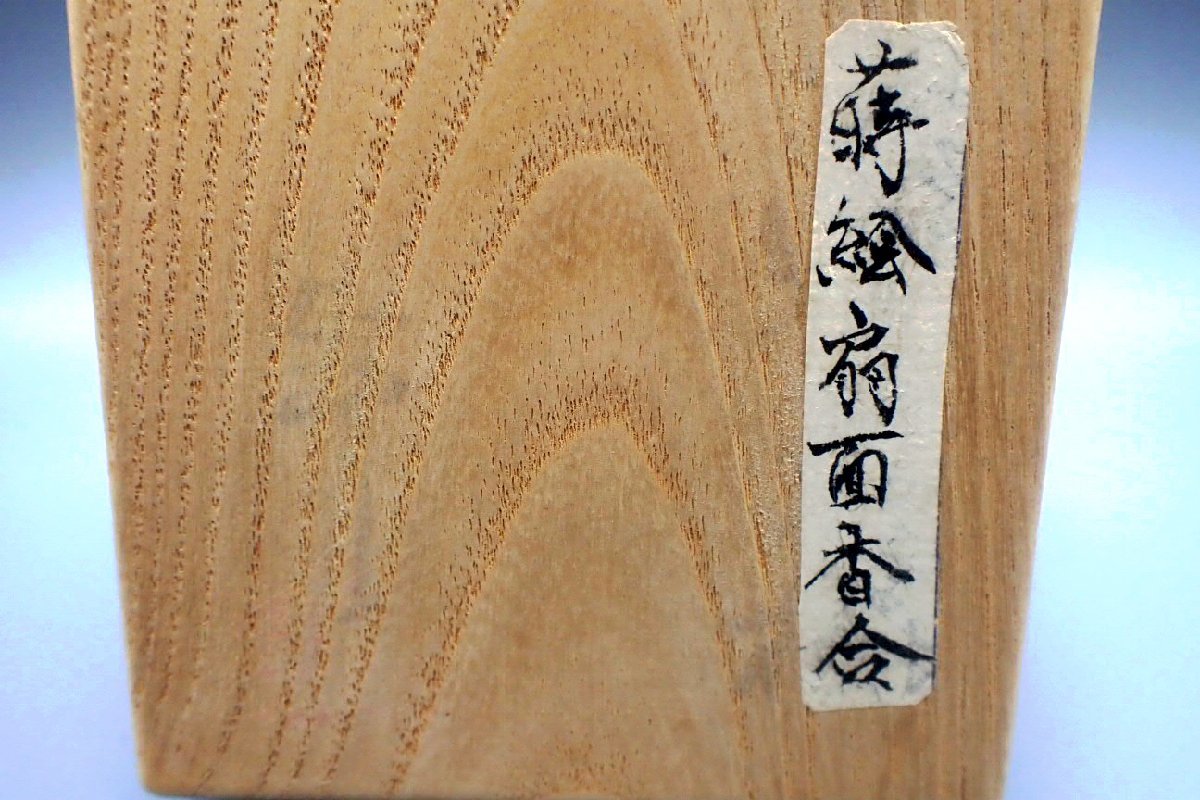 蒔絵扇面香合